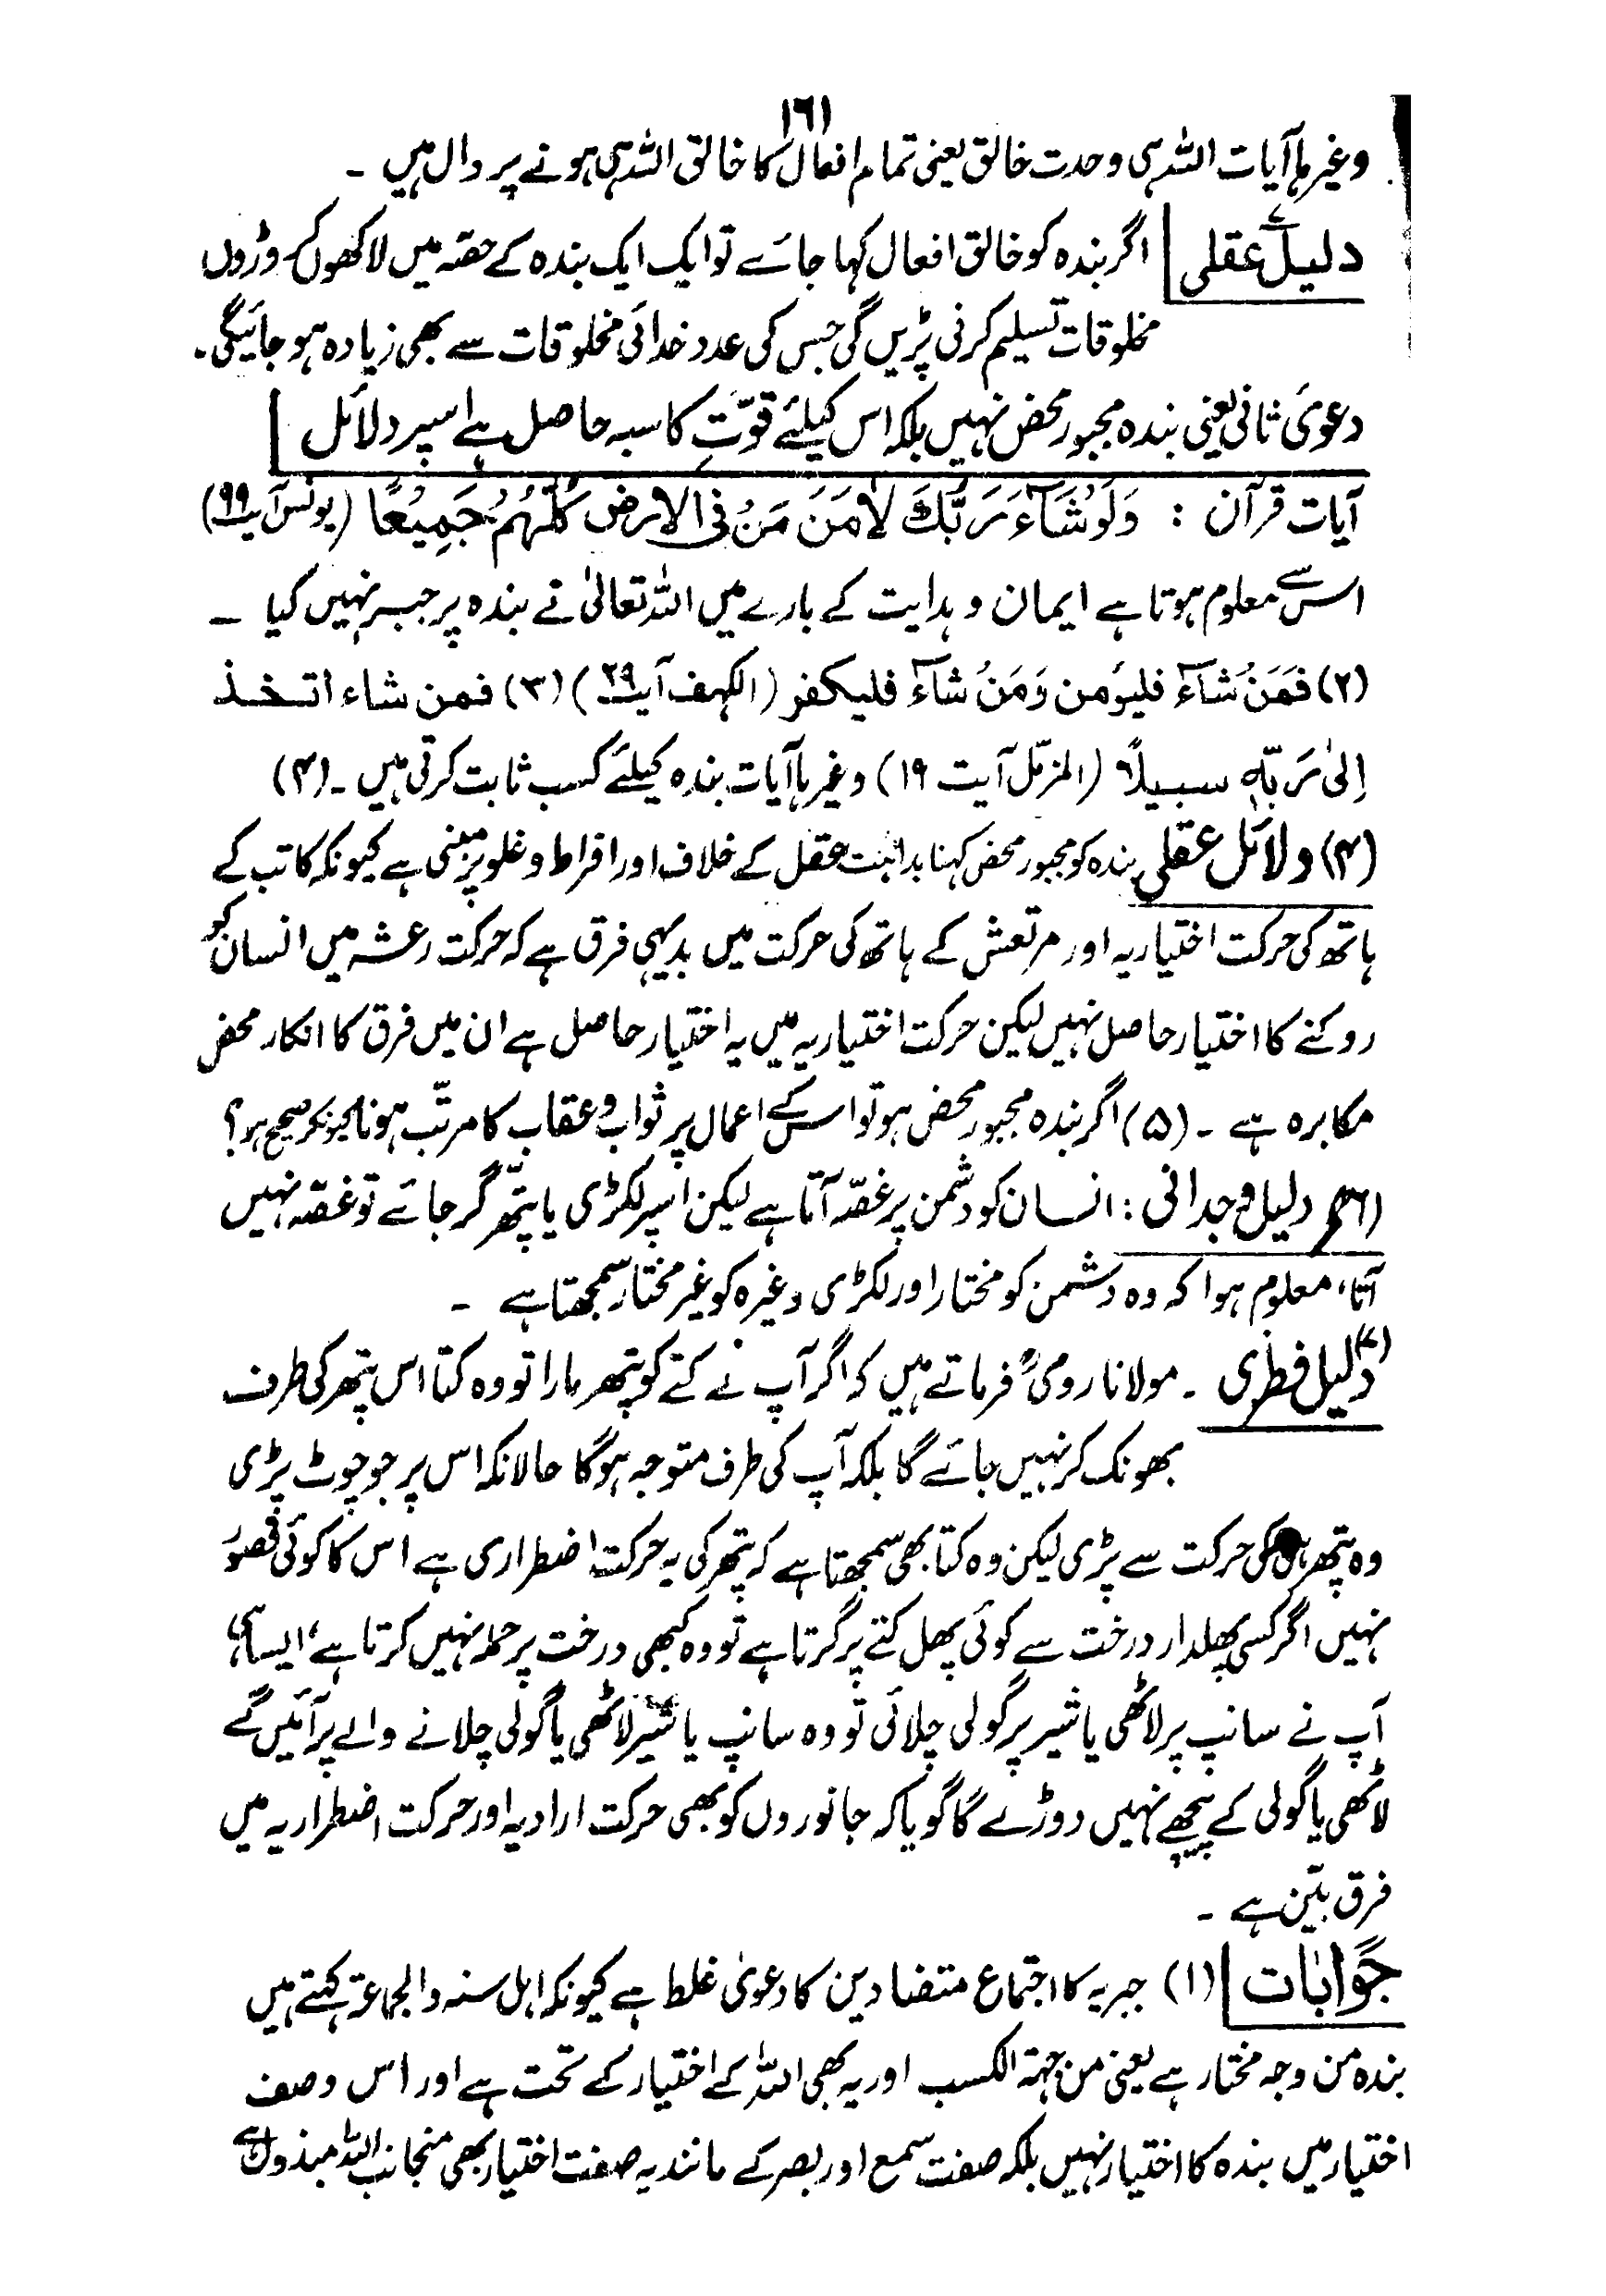 ۱۶۱
وغیرہا آیات اللہ ہی وحدت خالق یعنی تمام افعال کا خالق اللہ ہی ہونے پر دال ہیں ۔
دلیل عقلی اگر بندہ کو خالق افعال کہا جائے تو ایک ایک بندہ کے حصّہ میں لاکھوں کروڑوں
مخلوقات تسلیم کرنی پڑیں گی جس کی عدد خدائی مخلوقات سے بھی زیادہ ہو جائیگی۔
دعویٰ ثانی یعنی بندہ مجبور محض نہیں بلکہ اس کیلئے قوّتِ کاسبہ حاصل ہے اسپر دلائل
آیات قرآن : وَلَوْ شَآءَ رَبُّکَ لَاٰمَنَ مَنْ فی الارض کُلُّہُمْ جَمِیْعًا (یونس آیت ۹۹)
اس سے معلوم ہوتا ہے ایمان و ہدایت کے بارے میں اللہ تعالیٰ نے بندہ پر جبر نہیں کیا ۔
(۲) فَمَنْ شَآءَ فلیؤمن وَمَنْ شَآءَ فلیکفر (الکہف آیت ۲۹) (۳) فمن شاء اتخذ
اِلیٰ رَبِّہٖ سبیلاً (المزمّل آیت ۱۹) وغیرہا آیات بندہ کیلئے کسب ثابت کرتی ہیں ۔ (۴)
(۴) دلائل عقلی بندہ کو مجبور محض کہنا بداہت عقل کے خلاف اور افراط و غلو پر مبنی ہے کیونکہ کاتب کے
ہاتھ کی حرکت اختیاریہ اور مرتعش کے ہاتھ کی حرکت میں بدیہی فرق ہے کہ حرکت رعشہ میں انسان کو
روکنے کا اختیار حاصل نہیں لیکن حرکت اختیاریہ میں یہ اختیار حاصل ہے ان میں فرق کا انکار محض
مکابرہ ہے ۔ (۵) اگر بندہ مجبور محض ہو تو اس کے اعمال پر ثواب و عقاب کا مرتّب ہونا کیونکر صحیح ہو؟
(۶) دلیل وجدانی : انسان کو دشمن پر غصّہ آتا ہے لیکن اسپر لکڑی یا پتّھر گر جائے تو غصّہ نہیں
آتا، معلوم ہوا کہ وہ دشمن کو مختار اور لکڑی وغیرہ کو غیر مختار سمجھتا ہے ۔
(۷) دلیل فطری ۔ مولانا رومیؒ فرماتے ہیں کہ اگر آپ نے کتے کو پتھر مارا تو وہ کتا اس پتھر کی طرف
بھونک کر نہیں جائے گا بلکہ آپ کی طرف متوجہ ہوگا حالانکہ اس پر جو چوٹ پڑی
وہ پتھر ہی کی حرکت سے پڑی لیکن وہ کتا بھی سمجھتا ہے کہ پتھر کی یہ حرکت اضطراری ہے اس کا کوئی قصور
نہیں اگر کسی پھلدار درخت سے کوئی پھل کتے پر گرتا ہے تو وہ کبھی درخت پر حملہ نہیں کرتا ہے، ایسا ہی
آپ نے سانپ پر لاٹھی یا شیر پر گولی چلائی تو وہ سانپ یا شیر لاٹھی یا گولی چلانے والے پر آئیں گے
لاٹھی یا گولی کے پیچھے نہیں دوڑے گا گویا کہ جانوروں کو بھی حرکت ارادیہ اور حرکت اضطراریہ میں
فرق بیّن ہے ۔
جوابات (۱) جبریہ کا اجتماع متضادین کا دعویٰ غلط ہے کیونکہ اہل سنہ والجماعۃ کہتے ہیں
بندہ من وجہ مختار ہے یعنی من جہۃ الکسب اور یہ بھی اللہ کے اختیار کے تحت ہے اور اس وصف
اختیار میں بندہ کا اختیار نہیں بلکہ صفت سمع اور بصر کے مانند یہ صفت اختیار بھی منجانب اللہ مبذول ہے